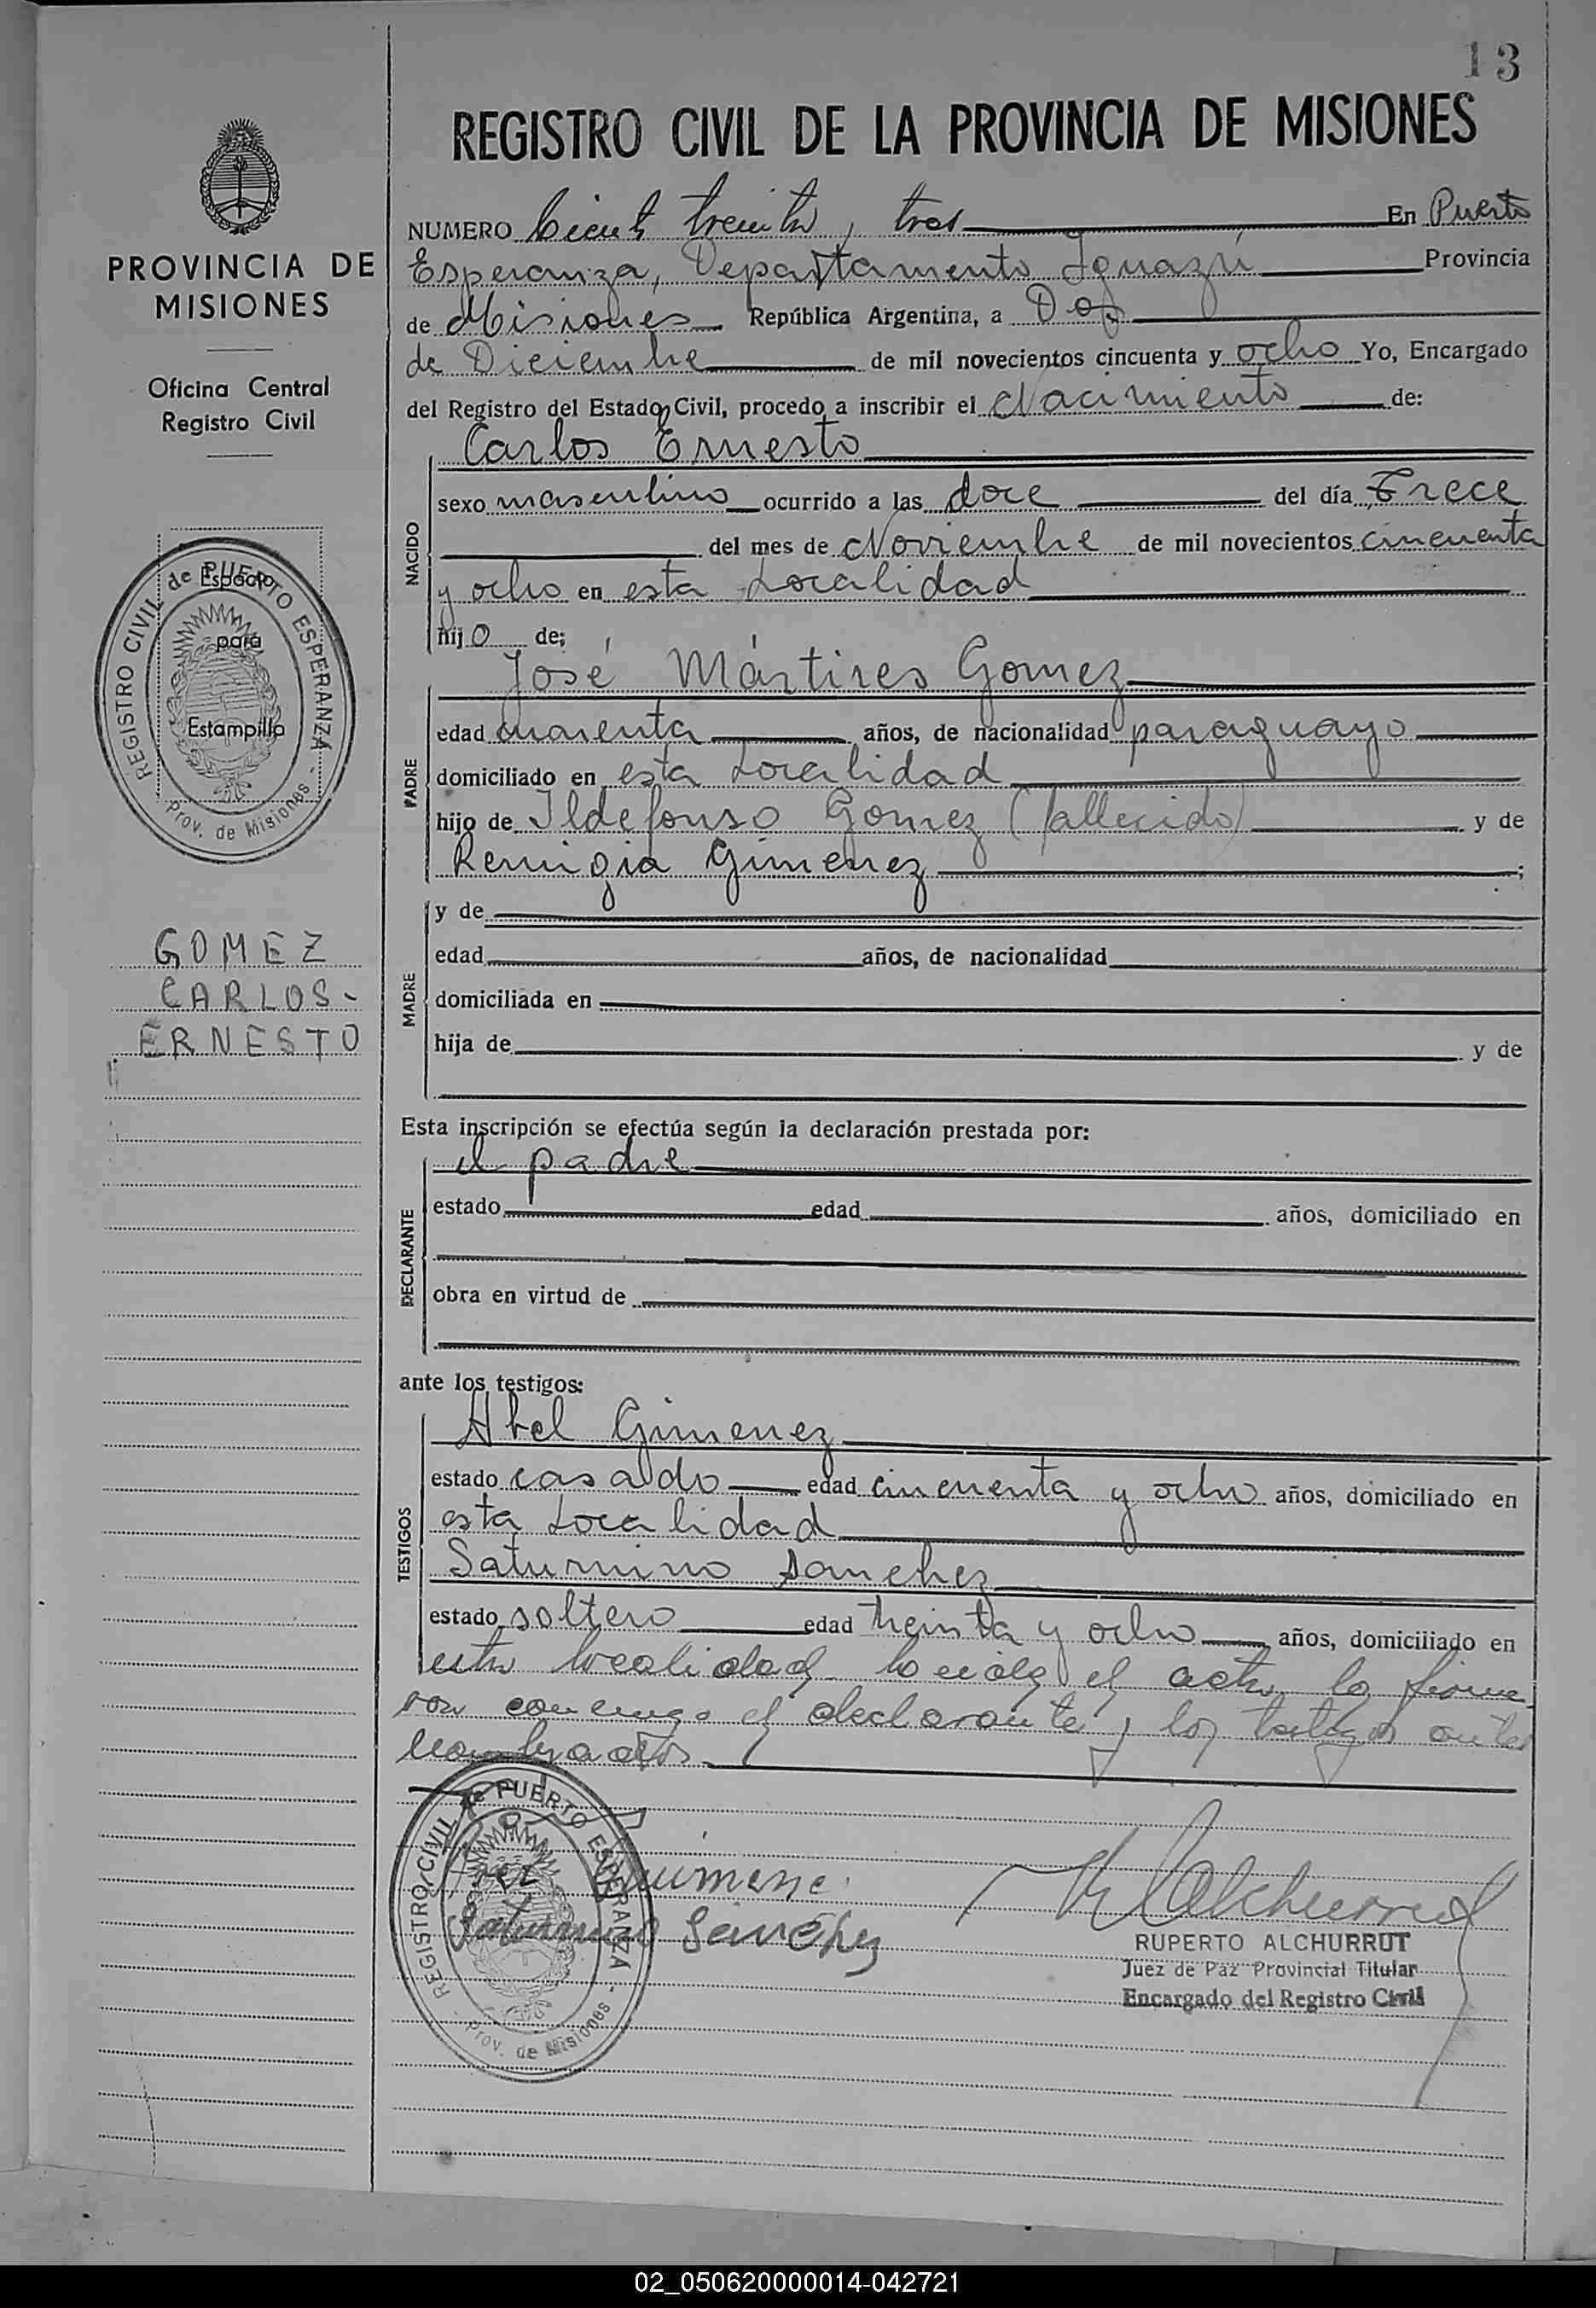 13
REGISTRO CIVIL DE LA PROVINCIA DE MISIONES
PROVINCIA DE
MISIONES
Oficina Central
Registro Civil
REGISTRO CIVIL de PUERTO ESPERANZA - Prov. de Misiones -
Espacio
para
Estampilla
GOMEZ
CARLOS -
ERNESTO
NUMERO Ciento treinta y tres En Puerto
Esperanza, Departamento Iguazú Provincia
de Misiones República Argentina, a Dos
de Diciembre de mil novecientos cincuenta y ocho Yo, Encargado
del Registro del Estado Civil, procedo a inscribir el Nacimiento de:
NACIDO
Carlos Ernesto
sexo masculino ocurrido a las doce del día Trece
del mes de Noviembre de mil novecientos cincuenta
y ocho en esta Localidad
hijo de;
PADRE
José Mártires Gomez
edad cuarenta años, de nacionalidad paraguayo
domiciliado en esta Localidad
hijo de Ildefonso Gomez (fallecido) y de
Remigia Gimenez ;
MADRE
y de
edad años, de nacionalidad
domiciliada en
hija de y de
Esta inscripción se efectúa según la declaración prestada por:
DECLARANTE
el padre
estado edad años, domiciliado en
obra en virtud de
ante los testigos:
TESTIGOS
Abel Gimenez
estado casado edad cincuenta y ocho años, domiciliado en
esta Localidad
Saturnino Sanchez
estado soltero edad treinta y ocho años, domiciliado en
esta localidad el acta la firma
ron conmigo el declarante y los testigos antes
nombrados
REGISTRO CIVIL de PUERTO ESPERANZA - Prov. de Misiones -
Saturnino Sanchez
RUPERTO ALCHURRUT
Juez de Paz Provincial Titular
Encargado del Registro Civil
02_050620000014-042721